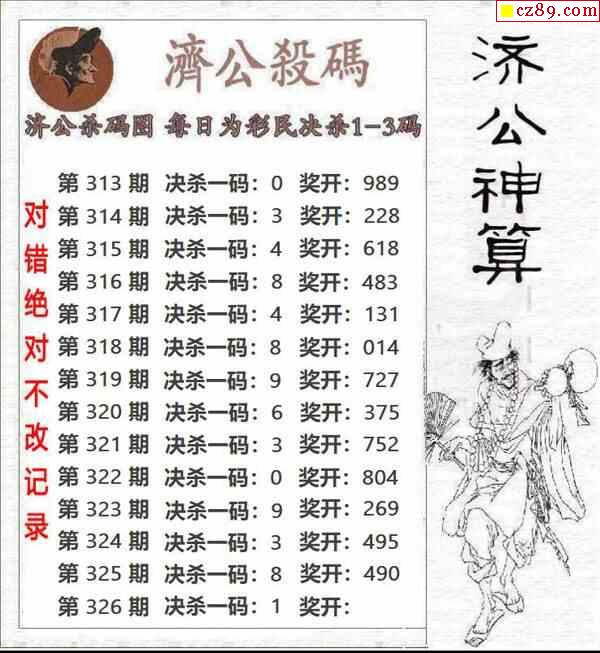 cz89.com
濟公殺碼
济公杀码图 每日为彩民决杀1-3码
第 313 期 决杀一码：0 奖开：989
第 314 期 决杀一码：3 奖开：228
第 315 期 决杀一码：4 奖开：618
第 316 期 决杀一码：8 奖开：483
第 317 期 决杀一码：4 奖开：131
第 318 期 决杀一码：8 奖开：014
第 319 期 决杀一码：9 奖开：727
第 320 期 决杀一码：6 奖开：375
第 321 期 决杀一码：3 奖开：752
第 322 期 决杀一码：0 奖开：804
第 323 期 决杀一码：9 奖开：269
第 324 期 决杀一码：3 奖开：495
第 325 期 决杀一码：8 奖开：490
第 326 期 决杀一码：1 奖开：
对错绝对不改记录
济公神算